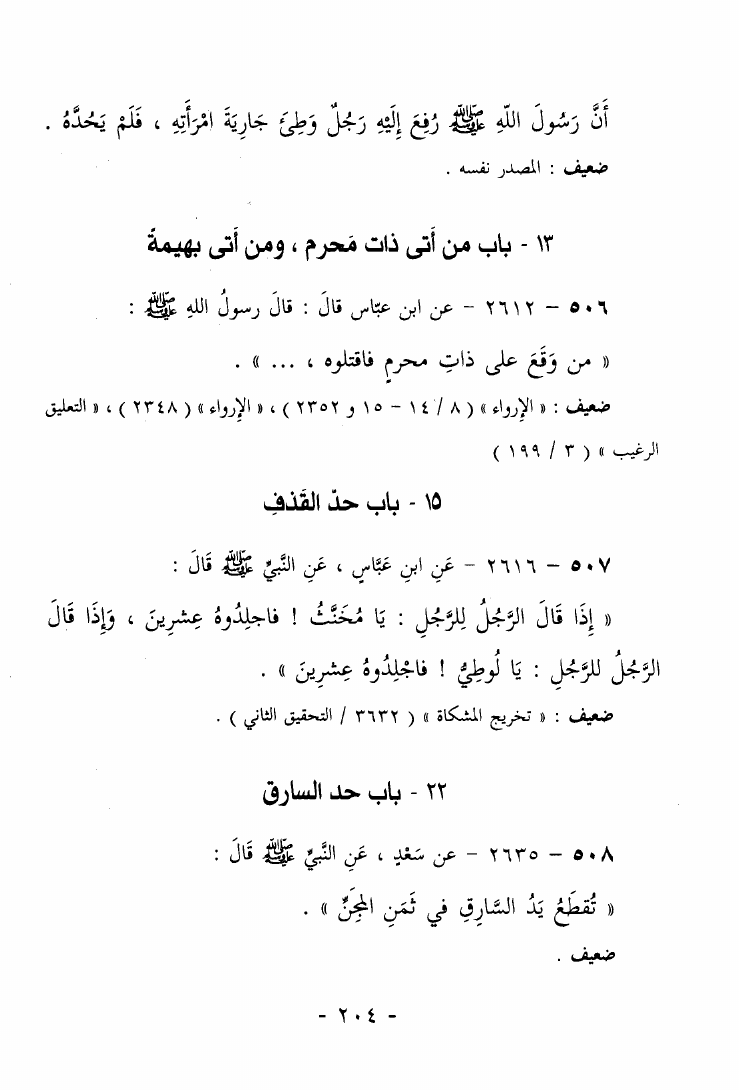 أَنَّ رَسُولَ اللّٰهِ ﷺ رُفِعَ إِلَيْهِ رَجُلٌ وَطِئَ جَارِيَةَ امْرَأَتِهِ ، فَلَمْ يَحُدَّهُ .
ضعيف : المصدر نفسه .
١٣ - باب من أَتى ذات مَحرم ، ومن أَتى بهيمةً
٥٠٦ – ٢٦١٢ – عن ابن عبّاس قالَ : قالَ رسولُ اللهِ ﷺ :
« من وَقَعَ على ذاتِ محرمٍ فاقتلوه ، ... » .
ضعيف : « الإرواء » ( ٨ / ١٤ – ١٥ و ٢٣٥٢ ) ، « الإرواء » ( ٢٣٤٨ ) ، « التعليق
الرغيب » ( ٣ / ١٩٩ )
١٥ - باب حدّ القَذفِ
٥٠٧ – ٢٦١٦ – عَنِ ابنِ عَبَّاسٍ ، عَنِ النَّبيِّ ﷺ قَالَ :
« إِذَا قَالَ الرَّجُلُ لِلرَّجُلِ : يَا مُخَنَّثُ ! فاجلِدُوهُ عِشرِينَ ، وَإِذَا قَالَ
الرَّجُلُ للرَّجُلِ : يَا لُوطِيُّ ! فاجْلِدُوهُ عِشرِينَ » .
ضعيف : « تخريج المشكاة » ( ٣٦٣٢ / التحقيق الثاني ) .
٢٢ - باب حد السارق
٥٠٨ – ٢٦٣٥ – عن سَعْدٍ ، عَنِ النَّبيِّ ﷺ قَالَ :
« تُقطَعُ يَدُ السَّارِقِ في ثَمَنِ المِجَنِّ » .
ضعيف .
- ٢٠٤ -